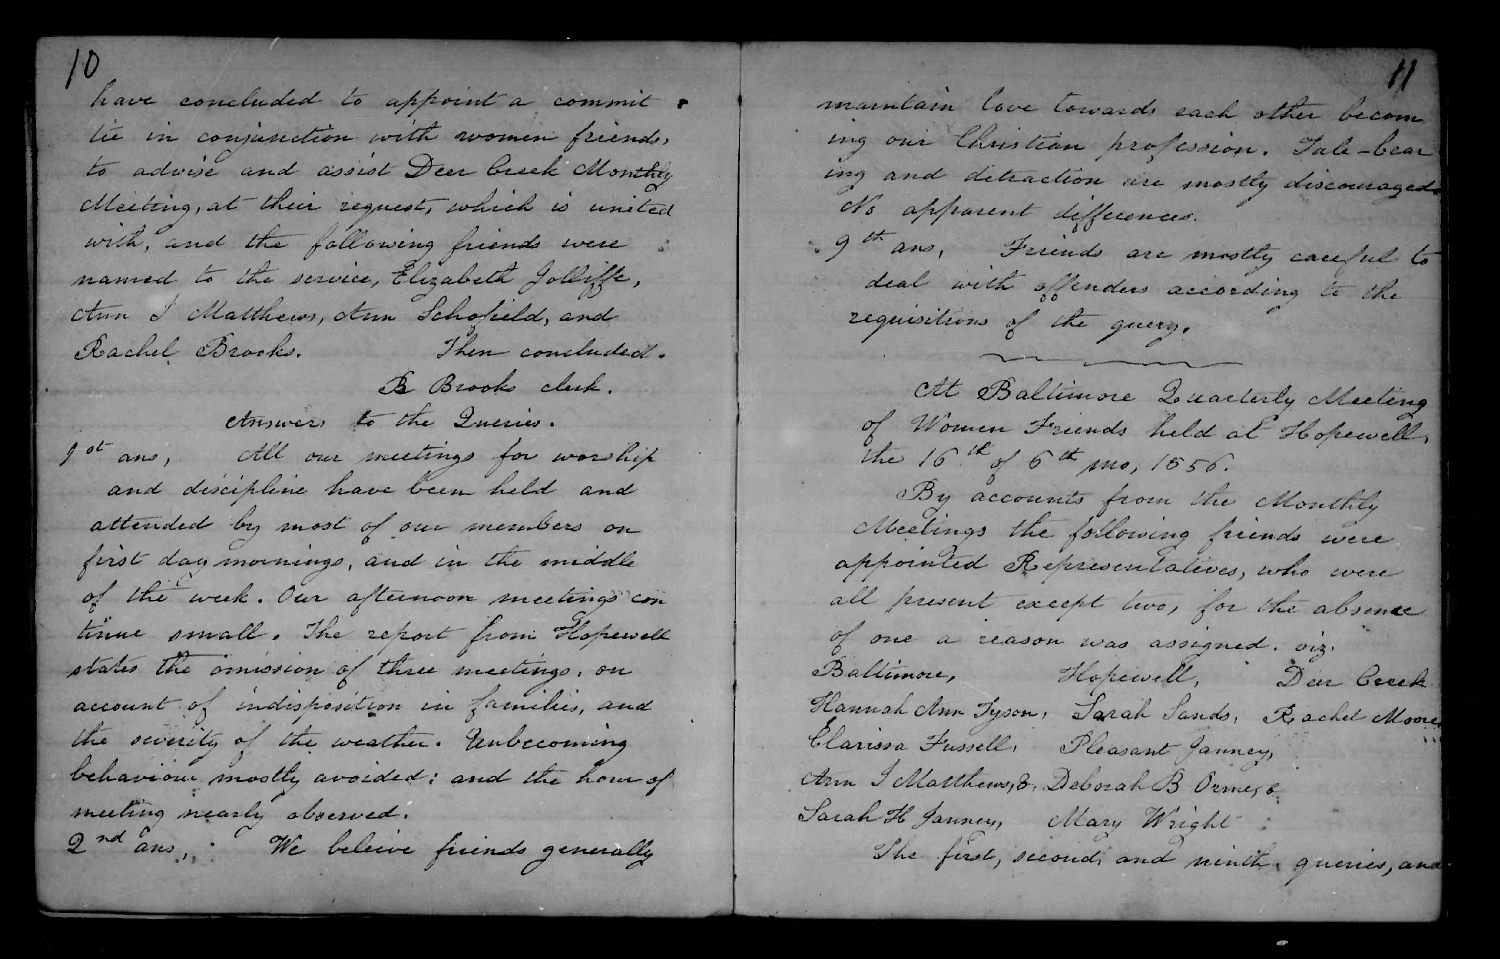 10
have concluded to appoint a commit
tie in conjunction with women friends,
to advise and assist Deer Creek Monthly
Meeting, at their request, which is united
with, and the following friends were
named to the service, Elizabeth Jolliffe,
Ann J Matthews, Ann Schofield, and
Rachel Brooks. Then concluded.
R Brooks clerk.
Answers to the Queries.
1st ans, All our meetings for worship
and discipline have been held and
attended by most of our members on
first day mornings, and in the middle
of the week. Our afternoon meetings con
tinue small. The report from Hopewell
states the omission of three meetings, on
account of indisposition in families, and
the severity of the weather. Unbecoming
behaviour mostly avoided; and the hour of
meeting nearly observed.
2nd ans, We beleive friends generally
11
maintain love towards each other becom
ing our Christian profession. Tale-bear
ing and detraction are mostly discouraged
No apparent differences.
9th ans, Friends are mostly careful to
deal with offenders according to the
requisitions of the query.
At Baltimore Quarterly Meeting
of Women Friends held at Hopewell,
the 16th of 6th mo, 1856.
By accounts from the Monthly
Meetings the following friends were
appointed Representatives, who were
all present except two, for the absence
of one a reason was assigned. viz.
Baltimore, Hopewell, Deer Creek
Hannah Ann Tyson, Sarah Sands, Rachel Moore,
Clarissa Fussell, Pleasant Janney,
Ann J Matthews, & Deborah B Orme, &
Sarah H Janney, Mary Wright
The first, second, and ninth queries, and